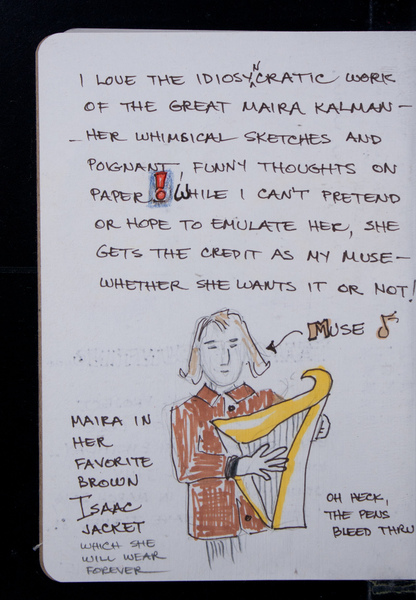 I LOVE THE IDIOSYNCRATIC WORK
OF THE GREAT MAIRA KALMAN —
— HER WHIMSICAL SKETCHES AND
POIGNANT FUNNY THOUGHTS ON
PAPER! WHILE I CAN'T PRETEND
OR HOPE TO EMULATE HER, SHE
GETS THE CREDIT AS MY MUSE —
WHETHER SHE WANTS IT OR NOT!
MUSE
MAIRA IN
HER
FAVORITE
BROWN
ISAAC
JACKET
WHICH SHE
WILL WEAR
FOREVER
OH HECK,
THE PENS
BLEED THRU